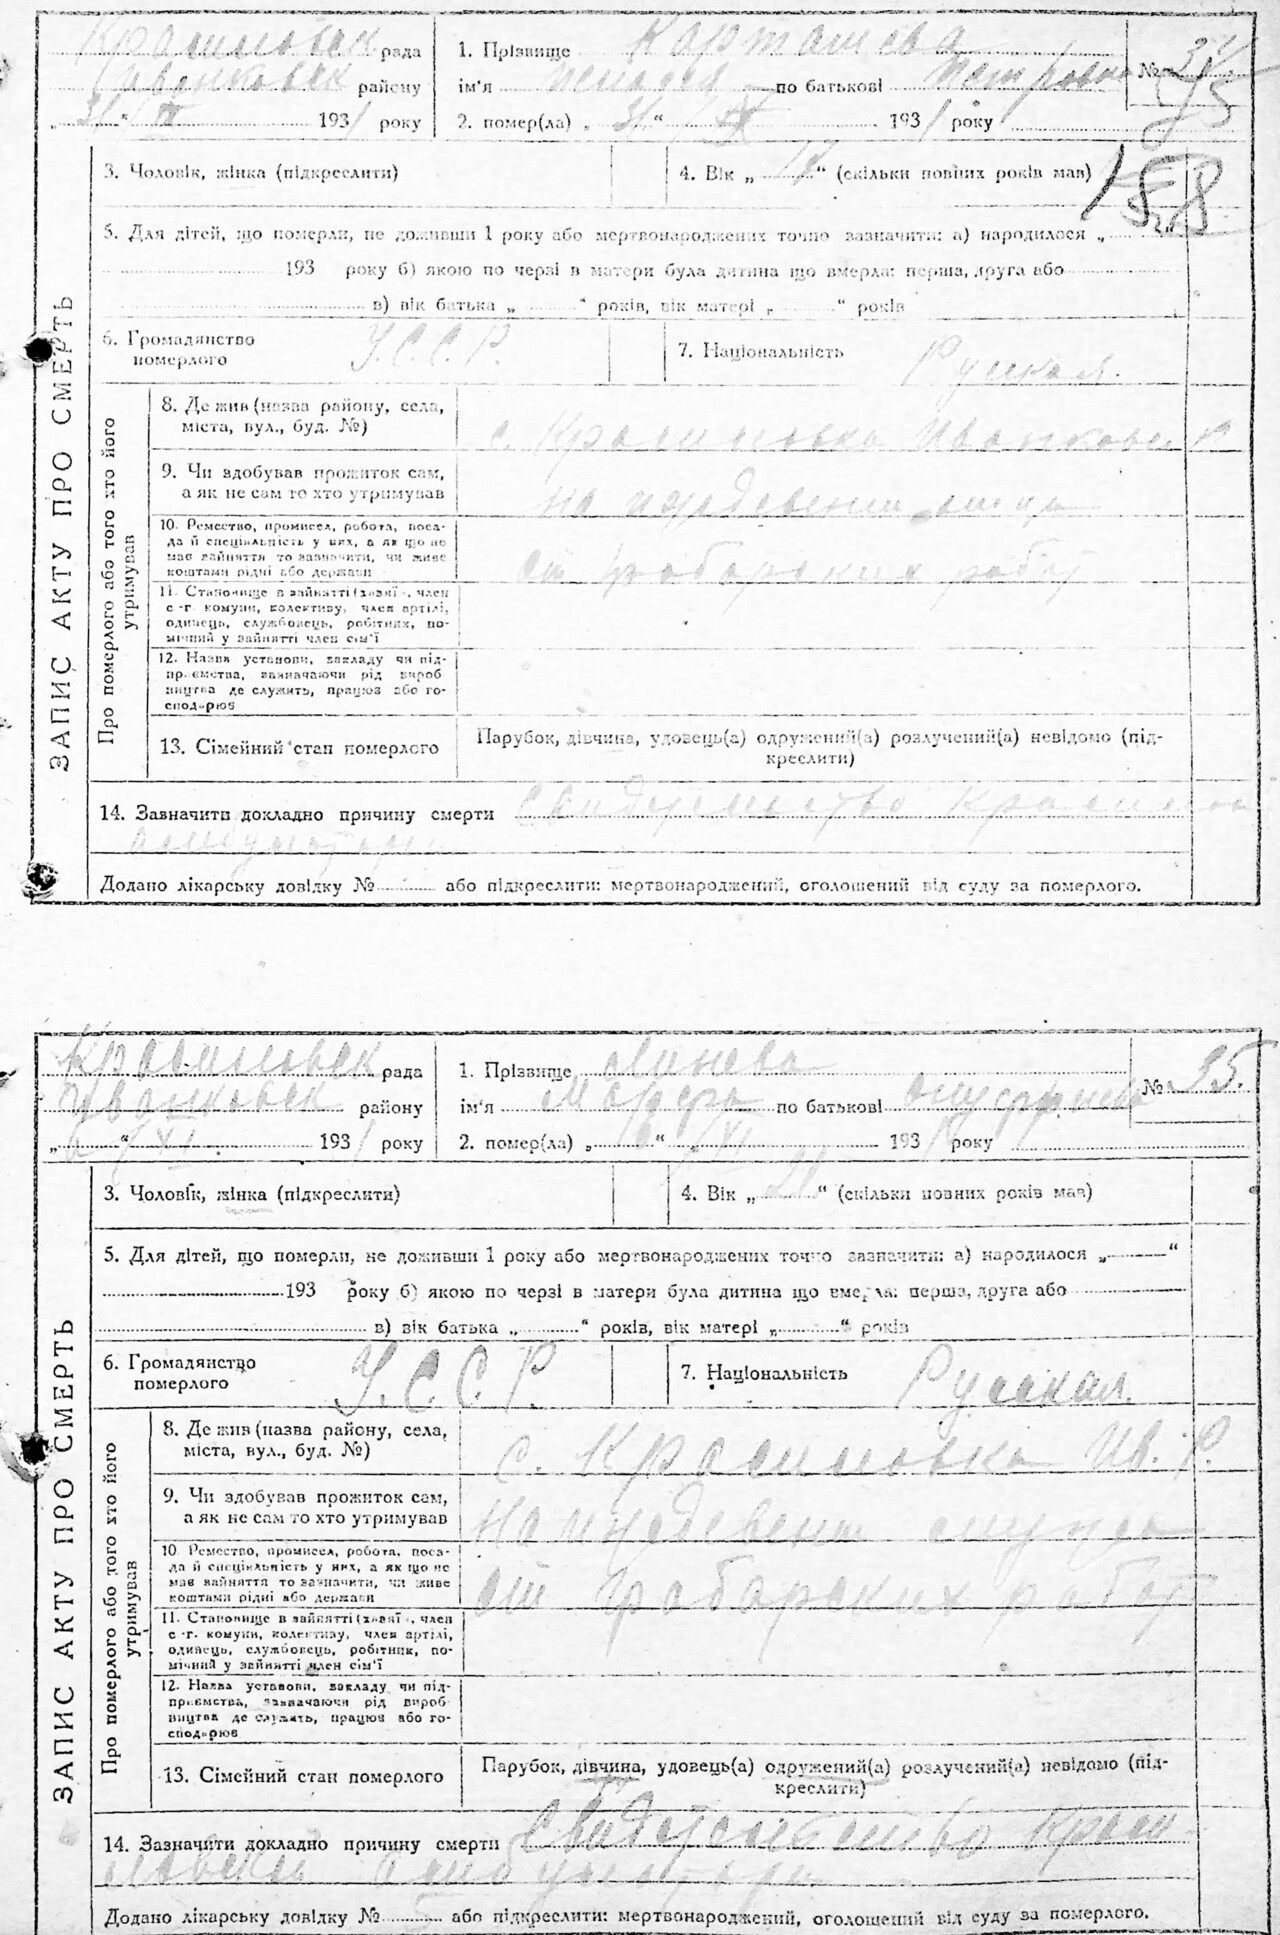 Красиловск рада
Иванковск району
„ 31 “ III 1931 року
1. Прізвище Карташева
ім'я по батькові Петровна
2. помер(ла) „ 31 “ 1931 року
№ 34
35
158
ЗАПИС АКТУ ПРО СМЕРТЬ
3. Чоловік, жінка (підкреслити)
4. Вік „ 17 “ (скільки повних років мав)
5. Для дітей, що померли, не доживши 1 року або мертвонароджених точно зазначити: а) народилося „ “
193 року б) якою по черзі в матери була дитина що вмерла: перша, друга або
в) вік батька „ “ років, вік матері „ “ років
6. Громадянство
померлого
У.С.С.Р.
7. Національність Руская.
Про померлого або того хто його
утримував
8. Де жив (назва району, села,
міста, вул., буд. №)
с. Красиловка Иванковск Р
9. Чи здобував прожиток сам,
а як не сам то хто утримував
на иждевении отца
10. Ремество, промисел, робота, поса-
да й спеціяльність у них, а як що не
має зайняття то зазначити, чи живе
коштами рідні або держави
от грабарских работ
11. Становище в зайнятті (хазяї , член
с.-г. комуни, колективу, член артілі,
одинець, службовець, робітник, по-
мічний у зайнятті член сім'ї
12. Назва установи, закладу чи під-
приємства, зазначаючи рід вироб
ництва де служить, працює або го-
сподарює
13. Сімейний стан померлого
Парубок, дівчина, удовець(а) одружений(а) розлучений(а) невідомо (під-
креслити)
14. Зазначити докладно причину смерти Свидетельство Красилов
амбулатории
Додано лікарську довідку № або підкреслити: мертвонароджений, оголошений від суду за померлого.
Красиловск рада
Иванковск району
„ 6 “ XI 1931 року
1. Прізвище Линева
ім'я Марфа по батькові Ануфриевна
2. помер(ла) „ 6 “ XI 1931 року
№ 35.
ЗАПИС АКТУ ПРО СМЕРТЬ
3. Чоловік, жінка (підкреслити)
4. Вік „ 21 “ (скільки повних років мав)
5. Для дітей, що померли, не доживши 1 року або мертвонароджених точно зазначити: а) народилося „ “
193 року б) якою по черзі в матери була дитина що вмерла: перша, друга або
в) вік батька „ “ років, вік матері „ “ років
6. Громадянство
померлого
У.С.С.Р.
7. Національність Русская.
Про померлого або того хто його
утримував
8. Де жив (назва району, села,
міста, вул., буд. №)
с. Красиловка Ив. Р.
9. Чи здобував прожиток сам,
а як не сам то хто утримував
на иждевении
10. Ремество, промисел, робота, поса-
да й спеціяльність у них, а як що не
має зайняття то зазначити, чи живе
коштами рідні або держави
от грабарских работ
11. Становище в зайнятті (хазяї , член
с.-г. комуни, колективу, член артілі,
одинець, службовець, робітник, по-
мічний у зайнятті член сім'ї
12. Назва установи, закладу чи під-
приємства, зазначаючи рід вироб
ництва де служить, працює або го-
сподарює
13. Сімейний стан померлого
Парубок, дівчина, удовець(а) одружений(а) розлучений(а) невідомо (під-
креслити)
14. Зазначити докладно причину смерти Свидетельство Краси
ловской амбулатории
Додано лікарську довідку № або підкреслити: мертвонароджений, оголошений від суду за померлого.